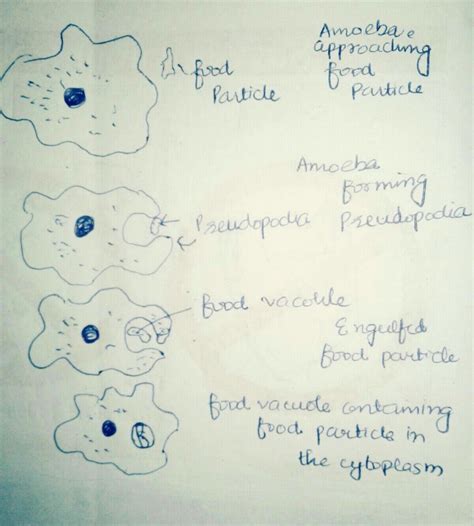 food
Particle
Amoeba
approaching
food
Particle
Amoeba
forming
Pseudopodia
Pseudopodia
food vacoule
Engulfed
food particle
food vacuole containing
food particle in
the cytoplasm